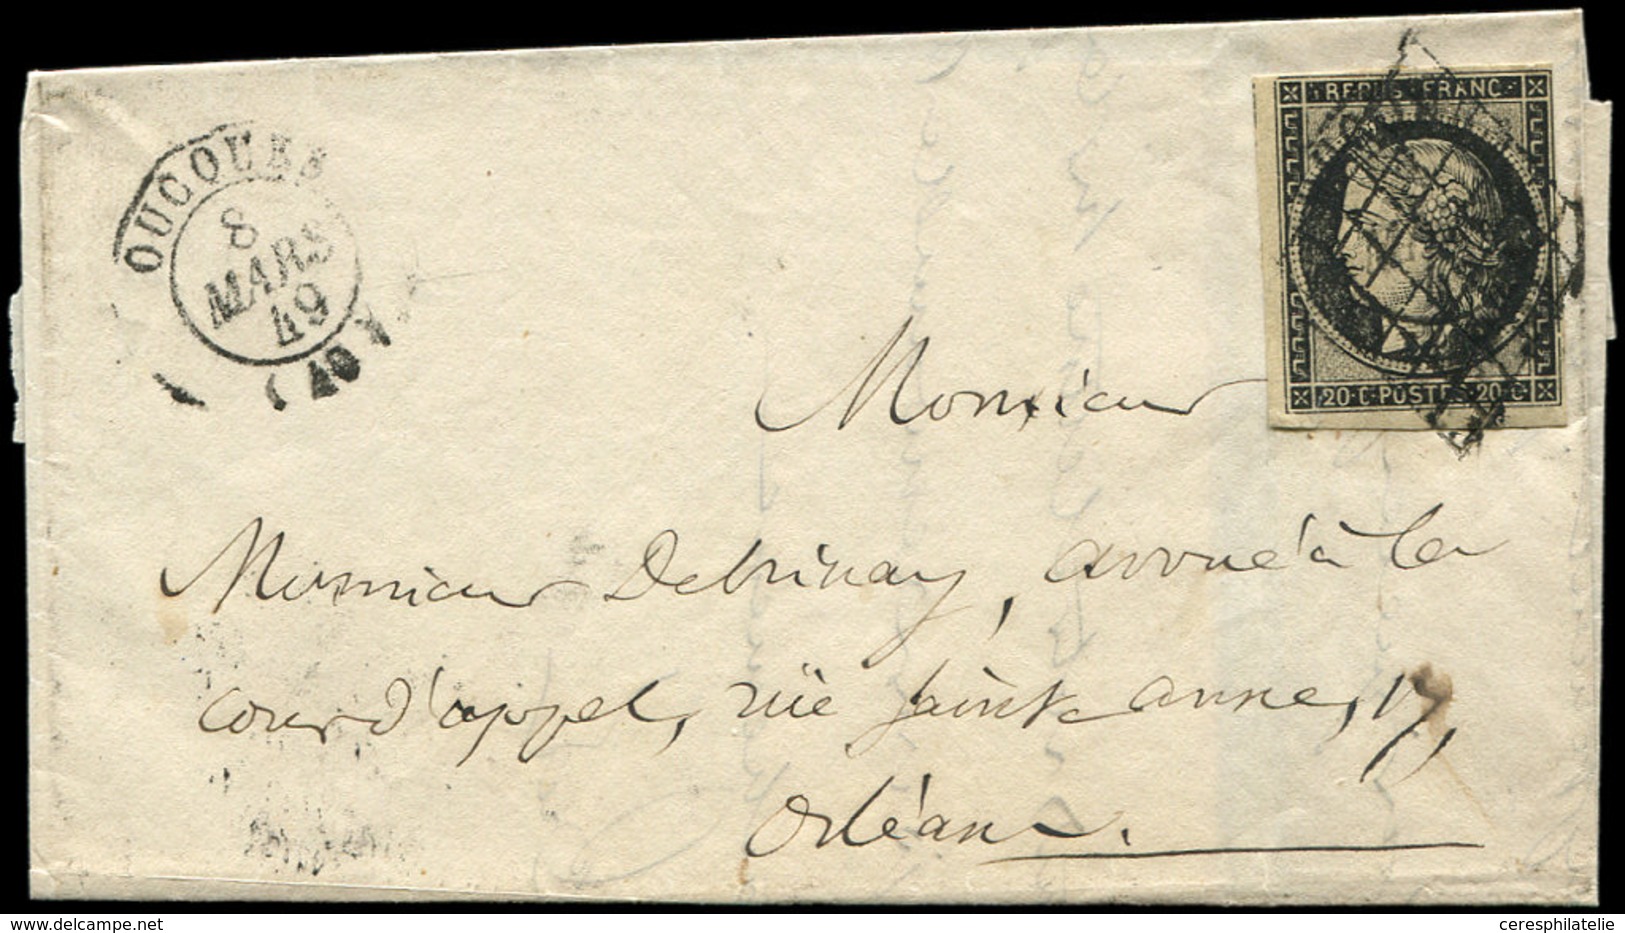 OUCQUES
8
MARS
49
(40)
REPUB · FRANC ·
20 · C · POSTES · 20 · C
Monsieur
Monsieur Debrinay, avoué à la
cour d'appel, rüe Sainte anne, 17,
Orléans.
www.delcampe.net
ceresphilatelie